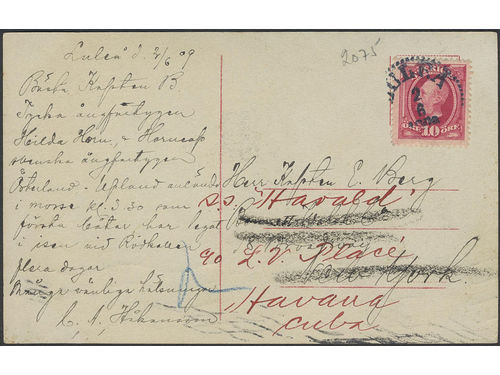 Luleå d. 2/6 09
2075
Bästa Kapten B.
Tyska ångfartygen
Hilda Horn, Horncap
svenska ångfartygen
Österland, Upland anlände
i morse kl. 3.30 som
första båtar har legat
i isen vid Rödkallen
flera dagar
Många vänliga hälsningar
LULEÅ
2
6
10 ÖRE
Herr Kapten E. Berg
S.S. "Harald"
90 L. V. Placé
New York.
Havana
Cuba